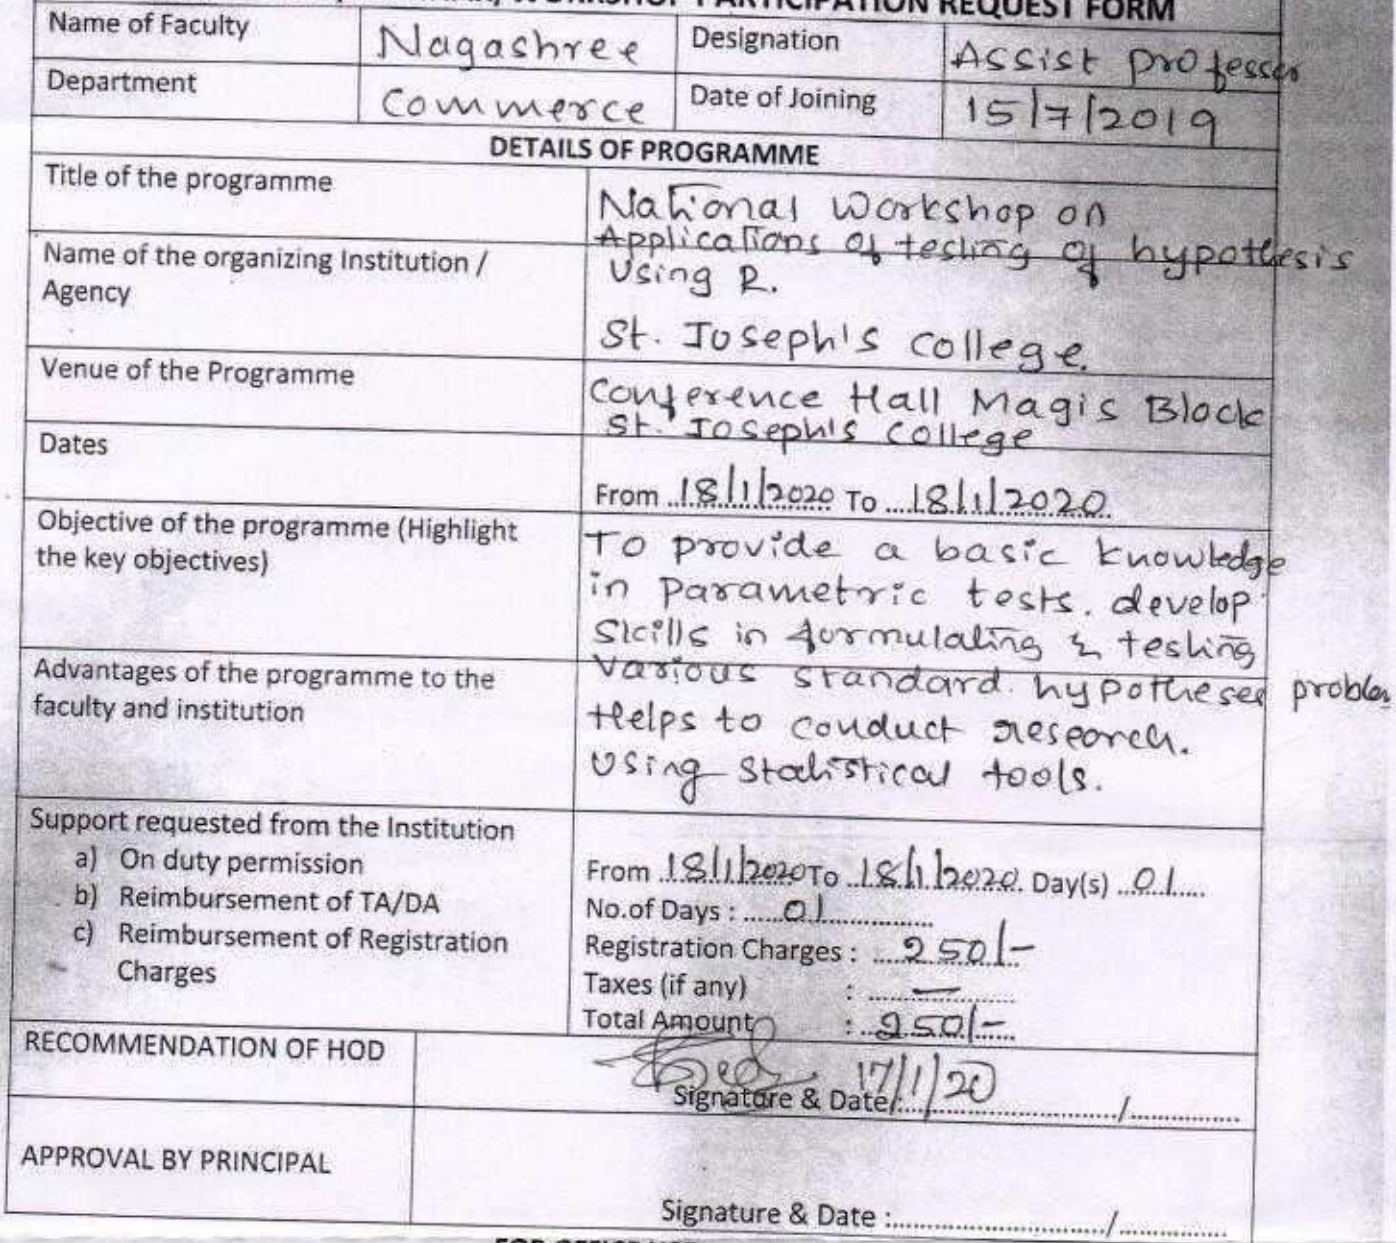 WORKSHOP PARTICIPATION REQUEST FORM
Name of Faculty Nagashree Designation Assist professer
Department Commerce Date of Joining 15/7/2019
DETAILS OF PROGRAMME
Title of the programme National Workshop on
Applications of testing of hypothesis
Using R.
Name of the organizing Institution /
Agency
St. Joseph's college.
Venue of the Programme Conference Hall Magis Block
St. Joseph's college
Dates
From 18/1/2020 To 18/1/2020
Objective of the programme (Highlight
the key objectives)
To provide a basic knowledge
in Parametric tests. develop
Skills in formulating & testing
Various standard hypotheses problem
Advantages of the programme to the
faculty and institution
Helps to conduct research.
Using Statistical tools.
Support requested from the Institution
a) On duty permission
b) Reimbursement of TA/DA
c) Reimbursement of Registration
Charges
From 18/1/2020 To 18/1/2020 Day(s) 01
No.of Days : 01
Registration Charges : 250/-
Taxes (if any) : —
Total Amount : 250/-
RECOMMENDATION OF HOD
Signature & Date: 17/1/20 /
APPROVAL BY PRINCIPAL
Signature & Date : /